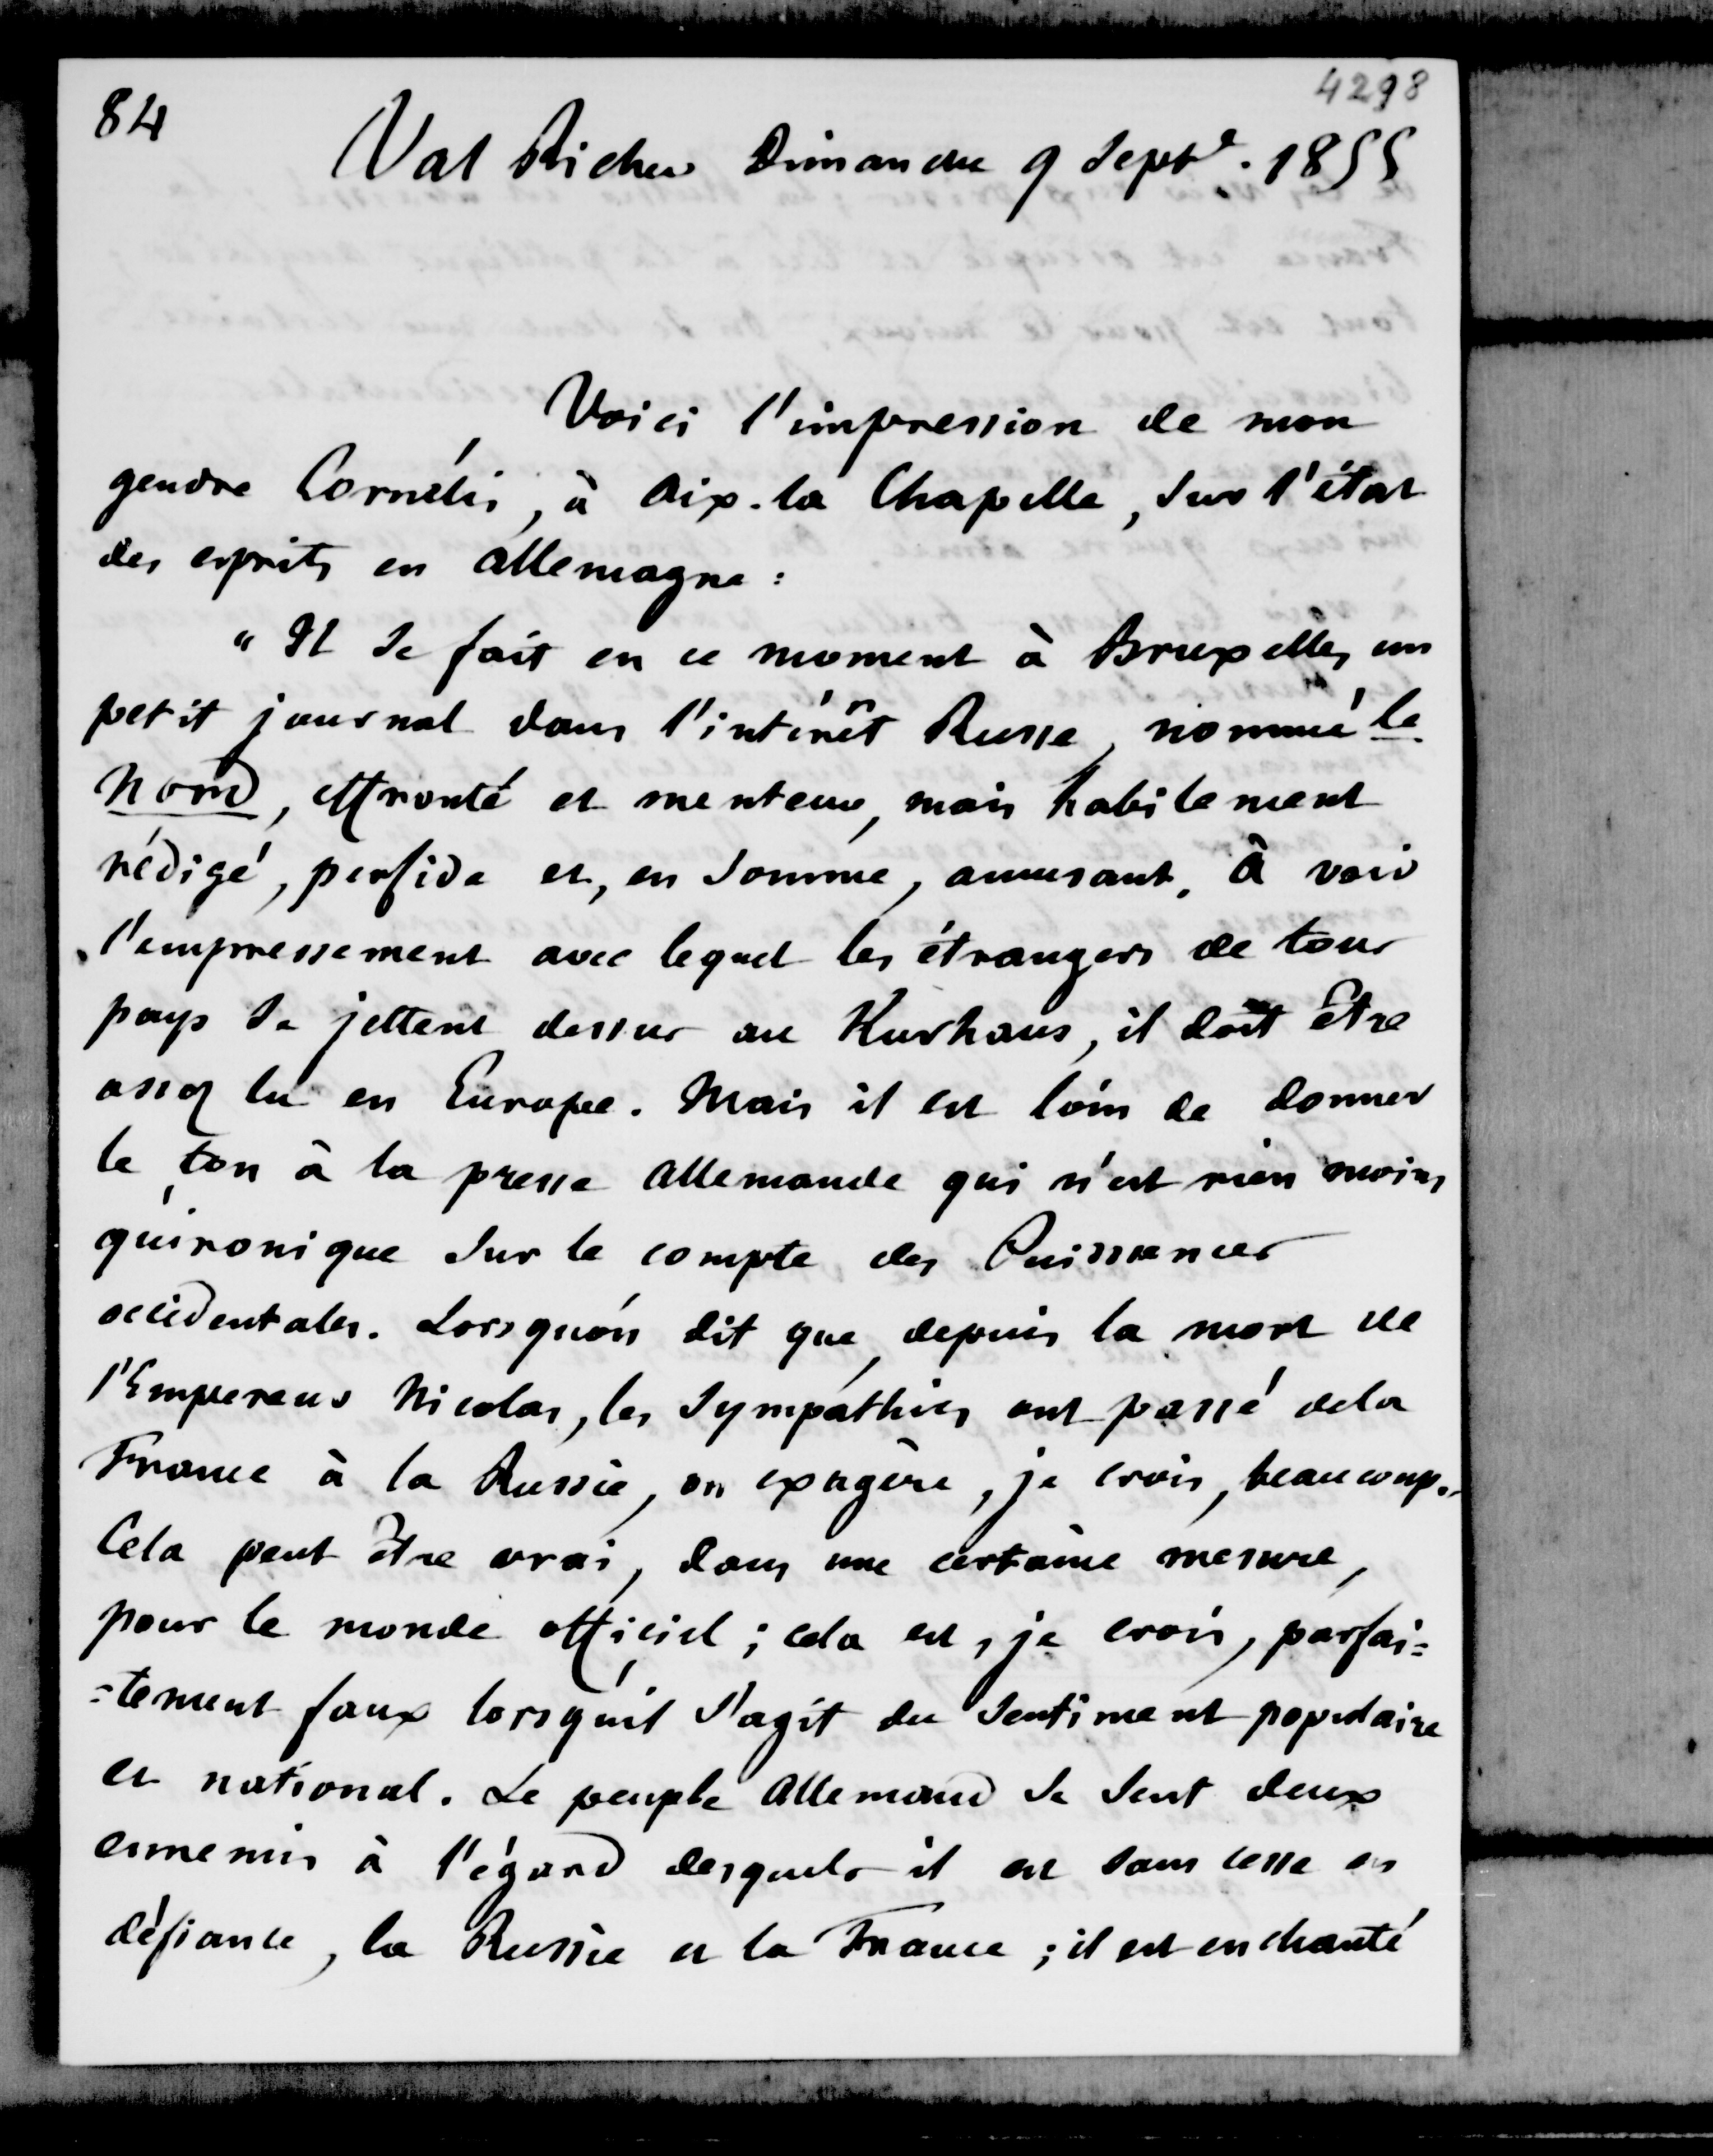 84
4298
Val Richer Dimanche 9 Septe. 1855
Voici l'impression de mon
gendre Cornélis, à Aix-la Chapelle, sur l'état
des esprits en Allemagne :
" Il se fait en ce moment à Bruxelles, un
petit journal dans l'intérêt Russe, nommé le
Nord, effronté et menteur, mais habilement
rédigé, perfide et, en somme, amusant. à voir
l'empressement avec lequel les étrangers de tous
pays se jettent dessus au Kurhaus, il doit être
assez lu en Europe. Mais il est loin de donner
le ton à la presse Allemande qui n'est rien moins
qu'ironique sur le compte des Puissances
occidentales. Lorsqu'on dit que, depuis la mort de
l'Empereur Nicolas, les sympathies ont passé de la
France à la Russie, on exagère, je crois, beaucoup.
Cela peut être vrai, dans une certaine mesure,
pour le monde officiel ; cela est, je crois, parfai=
=tement faux lorsqu'il s'agit du sentiment populaire
et national. Le peuple Allemand se sent deux
ennemis à l'égard desquels il est sans cesse en
défiance, la Russie et la France ; il est enchanté